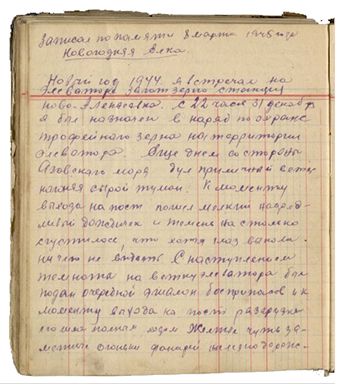 Записал по памяти 8 марта 1948 года
Новогодняя Елка.
Новый год 1944 я встречал на
элеваторе заготзерно станции
Ново-Алексеевка. С 22 часов 31 декабря
я был назначен в наряд по охране
трофейного зерна на территории
элеватора. Еще днем со стороны
Азовского моря дул приличный ветер
нагоняя сырой туман. К моменту
выхода на пост пошел мелкий надоед-
ливый дождичек и темень настолько
сгустилось, что хотя глаз выколи -
ничего не видать. С наступлением
темноты на ветку элеватора был
подан очередной эшелон боеприпасов и к
моменту выхода на пост разгрузка
его шла полным ходом Желтые чуть за-
метные огоньки фонарей железнодорож-